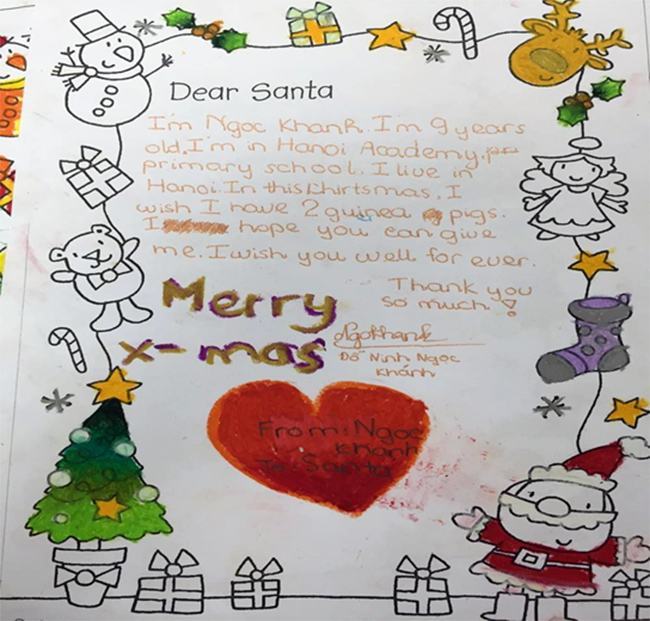 Dear Santa
I'm Ngoc Khanh. I'm 9 years
old. I'm in Hanoi Academy
primary school. I live in
Hanoi. In this Chirtsmas, I
wish I have 2 guinea pigs.
I hope you can give
me. I wish you well for ever.
Thank you
so much!
Merry
x-mas
NgoKhank
Đỗ Ninh Ngọc
Khánh
From: Ngoc
Khanh
To: Santa